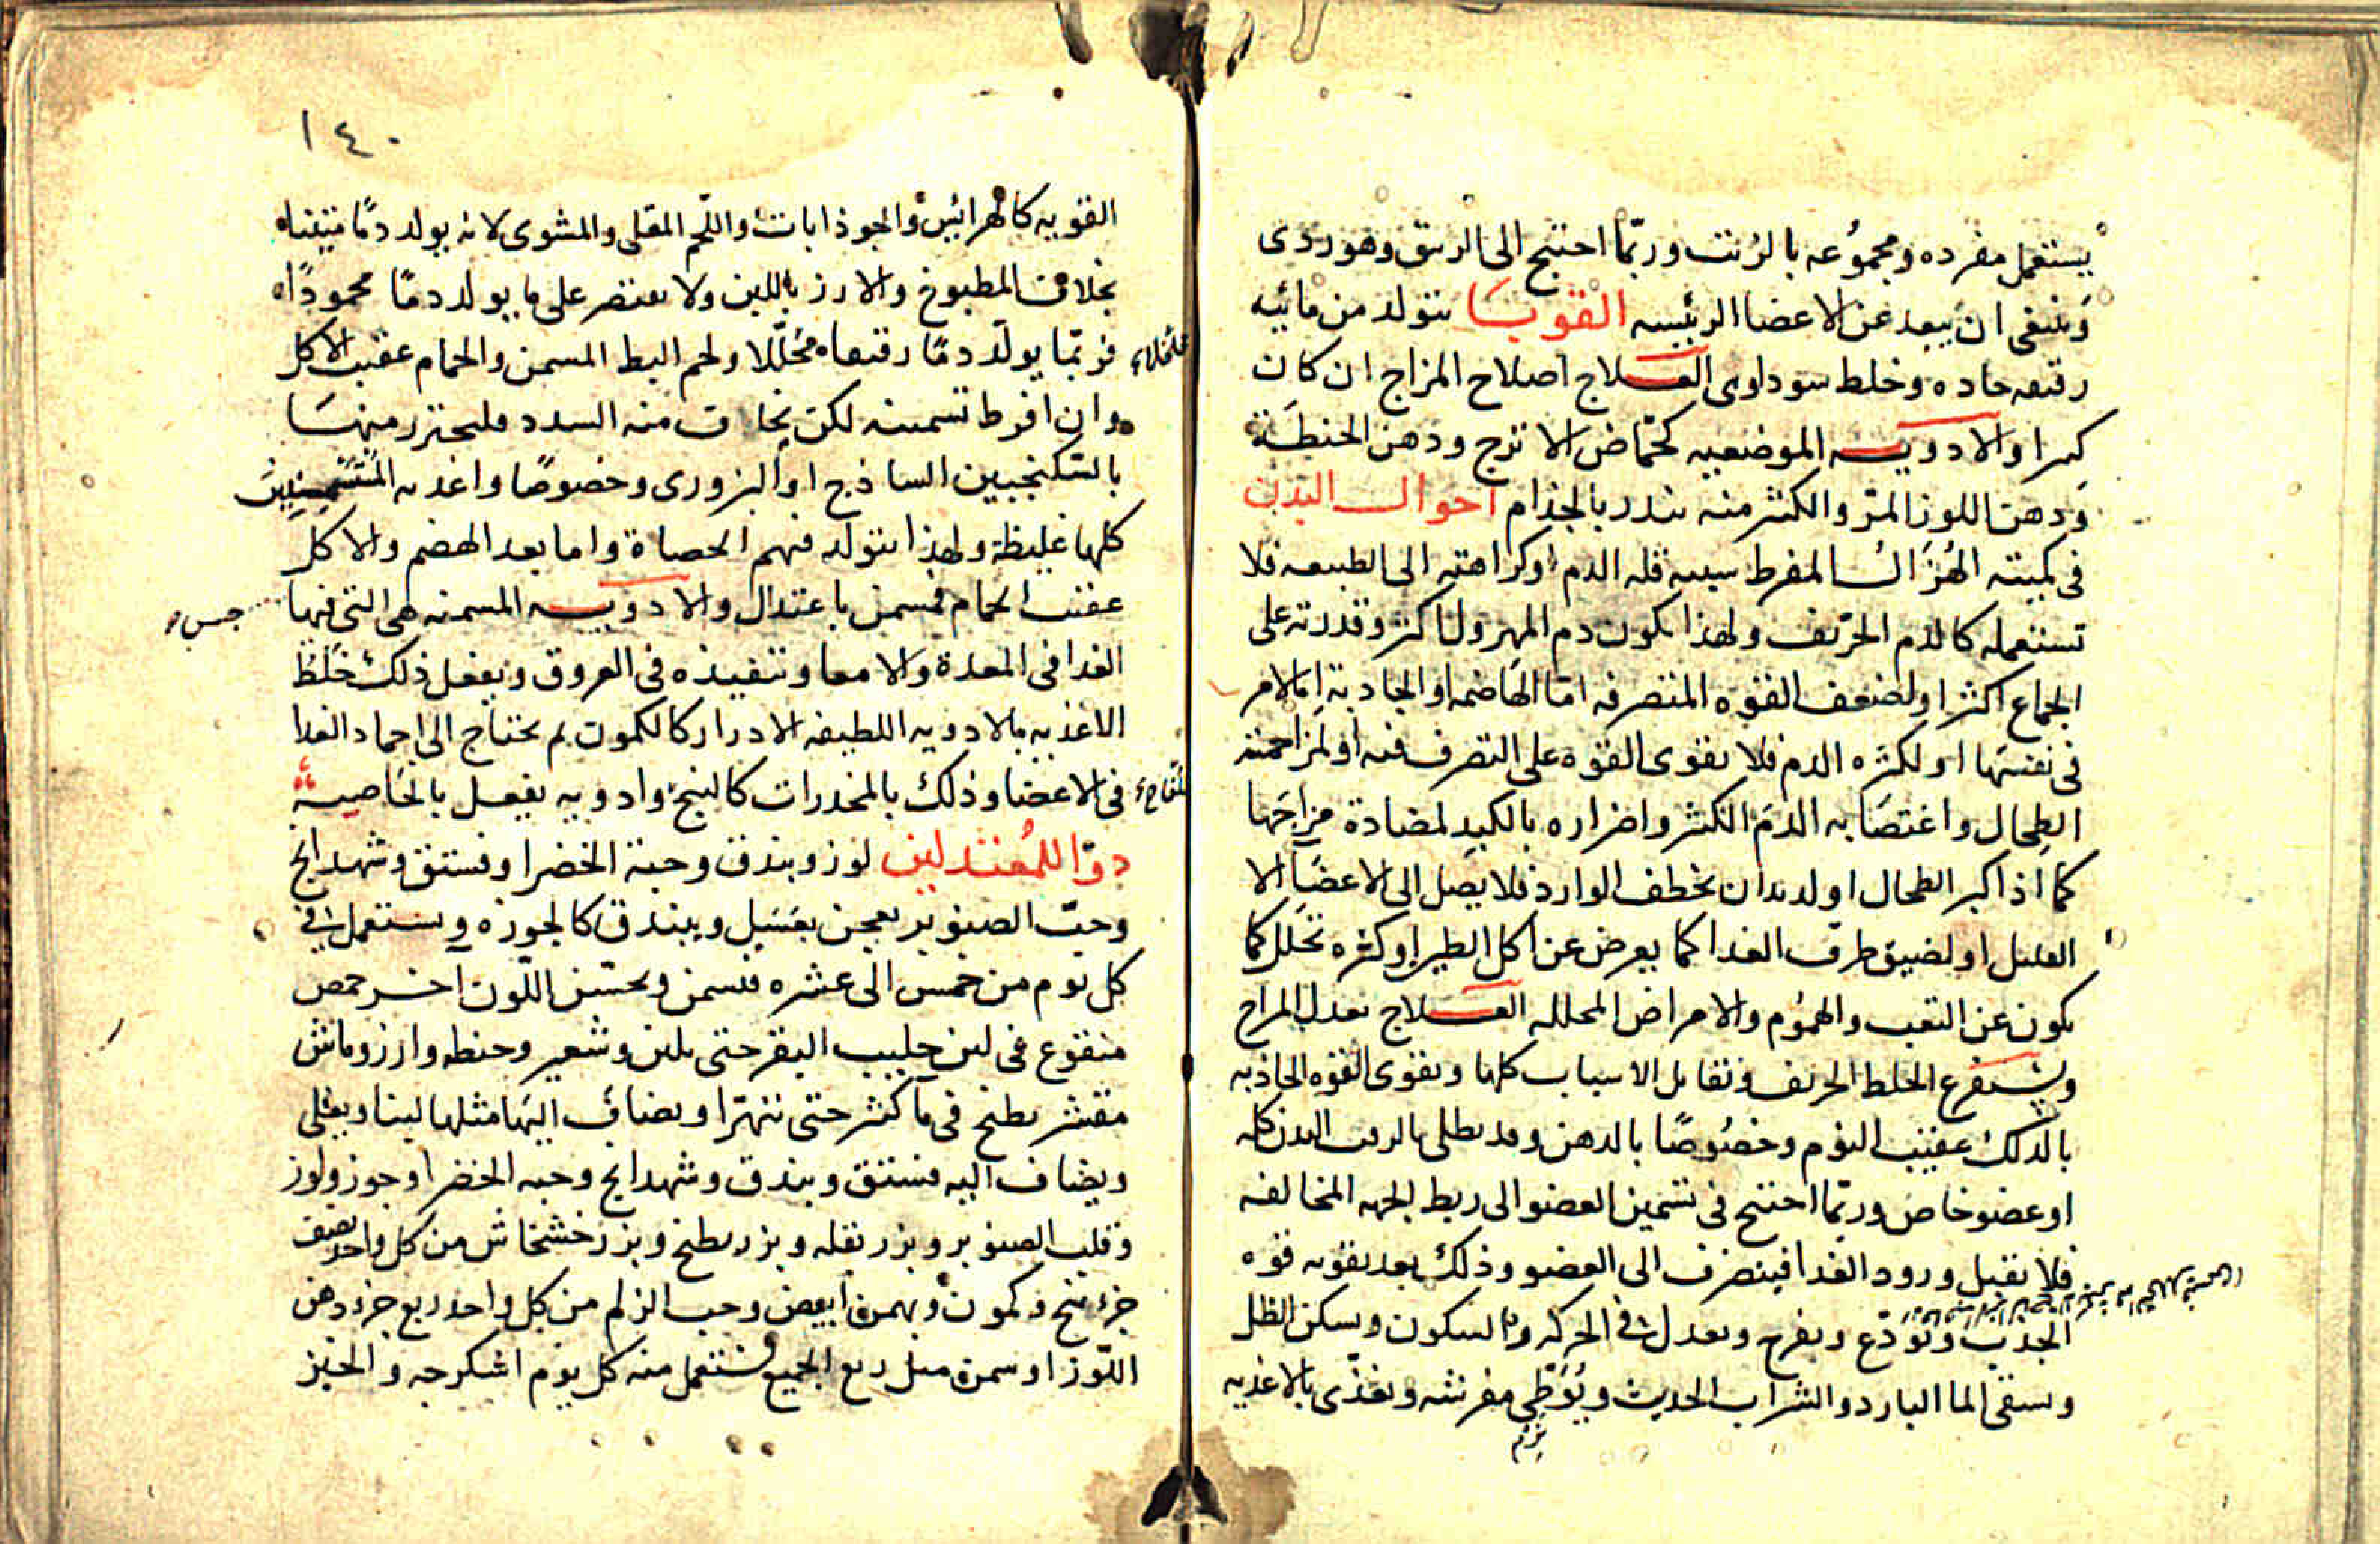 يستعمل مفرده ومجموعه بالزيت وربما احتيج الى الزيبق وهو ردى
وينبغى ان يبعد عن الاعضا الرئيسه القوبا يتولد من مائيه
رقيقه حاده وخلط سوداوى العلاج اصلاح المزاج ان كان
كبيرا والادويه الموضعيه كحماض الاترج ودهن الحنطة
ودهن اللوز المر والكثير منه ينذر بالجذام احوال البدن
فى كميته الهزال المفرط سببه قله الدم او كراهته الى الطبيعه فلا
تستعمله كالدم الحريف ولهذا يكون دم المهزول اكثر وقدرته على
الجماع اكثر او لضعف القوه المتصرفه اما الهاضمه او الجاذبة اما لامر
فى نفسها او لكثره الدم فلا تقوى القوه على التصرف فيه او لمزاحمة
الطحال واغتصابه الدم الكثير واضراره بالكبد لمضادة مزاجها
كما اذا كبر الطحال او لديدان تخطف الوارد فلا يصل الى الاعضا الا
القليل او لضيق طرق الغذا كما يعرض عن اكل الطين او كثره تحلل كما
يكون عن التعب والهموم والامراض المحلله العلاج تعدل المزاج
ويستفرغ الخلط الحريف وتقابل الاسباب كلها وتقوى القوه الجاذبه
بالدلك عقيب النوم وخصوصًا بالدهن وقد يطلى بالزفت البدن كله
او عضو خاص وربما احتيج فى تسمين العضو الى ربط الجهه المخالفه
فلا تقبل ورود الغذا فينصرف الى العضو وذلك بعد تقويه قوه
الجذب ويودع ويفرح ويعدل فى الحركه والسكون ويسكن الظل
ويسقى الما البارد والشراب الحديث ويوطى مفرشه ويغذى بالاغذيه
١٤٠
القويه كالهرائس والجوذابات واللحم المقلى والمشوى لانه يولد دمًا متينا
بخلاف المطبوخ والارز باللبن ولا يقتصر على ما يولد دمًا محمودًا
فربما يولد دمًا رقيقا متحللا ولحم البط المسمن والحمام عقيب الاكل
وان افرط تسمينه لكن يخاف منه السدد فليحترز منها
بالسكنجبين الساذج او البزورى وخصوصًا واغذيه المتسمنين
كلها غليظة ولهذا يتولد فيهم الحصاة واما بعد الهضم والاكل
عقيب الحمام فيسمن باعتدال والادويه المسمنه هى التى فيها
حبس
الغذا فى المعدة والامعا وتنفيذه فى العروق ويفعل ذلك خلط
الاغذيه بالادويه اللطيفه الادرار كالكمون ثم يحتاج الى اجماد الغذا
فى الاعضا وذلك بالمخدرات كالبنج وادويه يفعل بالخاصيه
دوا للمعتدلين لوز وبندق وحبة الخضرا وفستق وشهدانج
وحب الصنوبر يعجن بعسل ويبندق كالجوزه ويستعمل فى
كل يوم من خمس الى عشره فيسمن ويحسن اللون اخر حمص
منقوع فى لبن حليب البقر حتى يلين وشعير وحنطه وارز وماش
مقشر يطبخ فى ما كثير حتى يتهرا ويضاف اليها مثلها لبنا ويغلى
ويضاف اليه فستق وبندق وشهدانج وحبه الخضرا وجوز ولوز
وقلب الصنوبر وبزر بقله وبزر بطيخ وبزر خشخاش من كل واحد نصف
جزء بنج وكمون وبهمن ابيض وحب الزلم من كل واحد ربع جزء دهن
اللوز او سمن مثل ربع الجميع يستعمل منه كل يوم اسكرجه والخبز